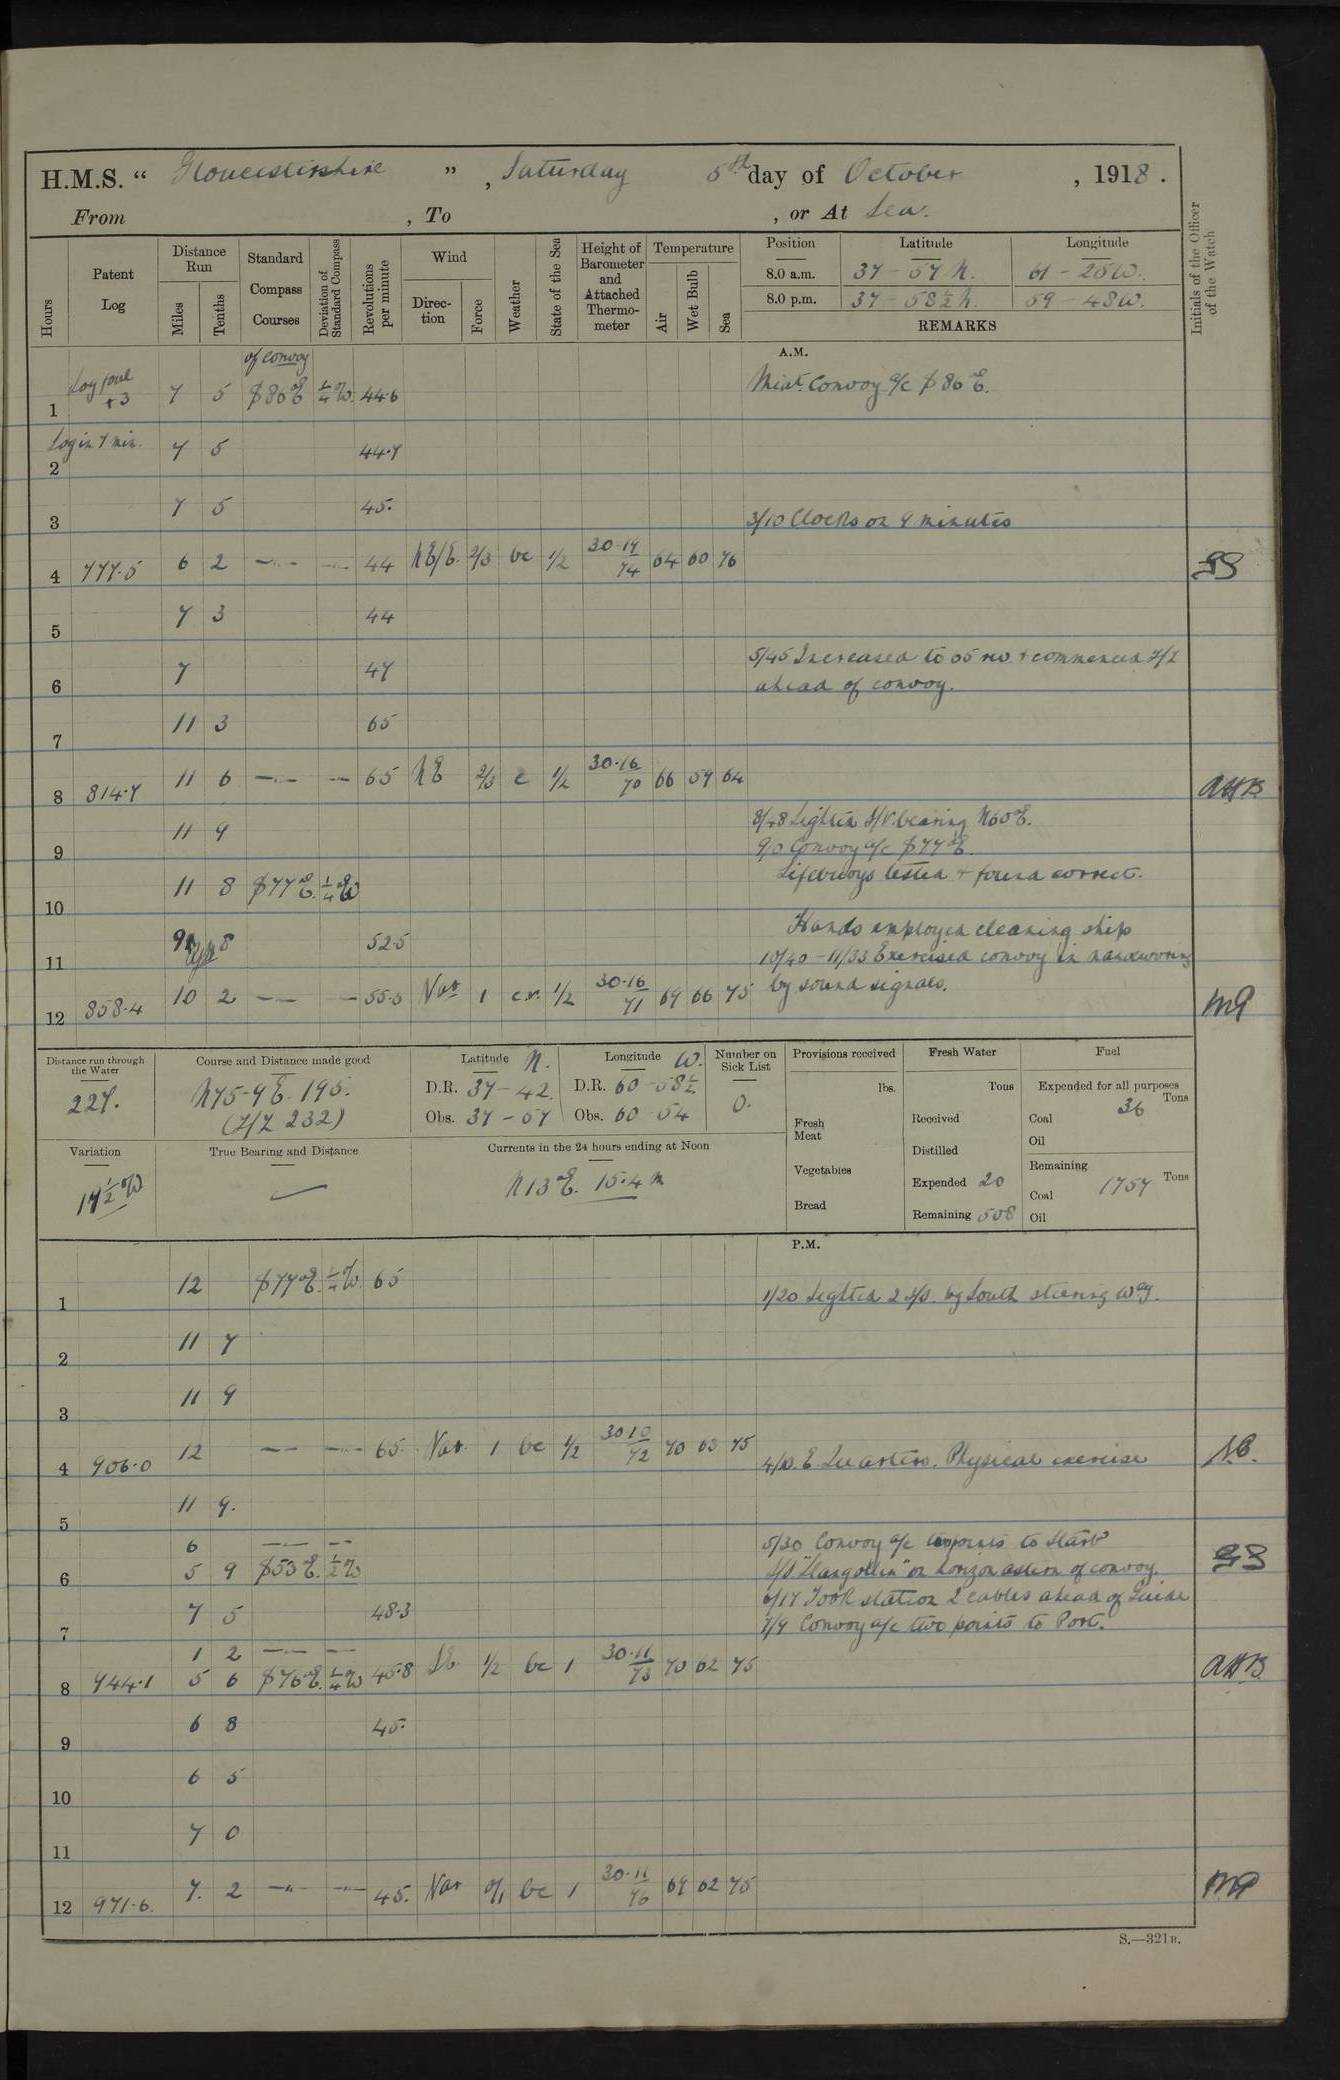 H.M.S. “ Gloucestershire ” , Saturday 5th day of October , 1918 .
From , To , or At Sea.
Hours
Patent Log
Distance Run
Miles
Tenths
Standard Compass Courses
Deviation of Standard Compass
Revolutions per minute
Wind
Direction
Force
Weather
State of the Sea
Height of Barometer and Attached Thermometer
Temperature
Air
Wet Bulb
Sea
Position Latitude Longitude
8.0 a.m. 37 - 57 N. 61 - 25 W.
8.0 p.m. 37 - 58½ N. 59 - 48 W.
REMARKS
Initials of the Officer of the Watch
A.M.
of convoy
1 +3 7 5 S 86° E ¼° W. 44.6 Convoy a/c S 86° E.
2 Log in 7 min. 7 5 44.7
3 7 5 45. 3/10 Clocks on 9 minutes
4 777.5 6 2 44 NE/E. 2/3 bc 1/2 30.14 74 64 60 76
5 7 3 44
6 7 47 5/45 Increased to 65 rev. + commenced Z/Z
ahead of convoy.
7 11 3 65
8 814.7 11 6 65 NE 2/3 c 1/2 30.16 70 66 59 64 AHB
9 11 9 8/48 Sighted S/V. bearing N60°E.
9/0 Convoy a/c S 77° E.
Lifebuoys tested + found correct.
10 11 8 S 77° E. ¼° W
11 9 8 52.5 Hands employed cleaning ship
10/40 - 11/33 Exercised convoy in manoeuvring
12 858.4 10 2 55.5 Var 1 c.r. 1/2 30.16 71 69 66 75 by sound signals.
Distance run through the Water
227.
Course and Distance made good
N75-9 E. 195.
(Z/Z 232)
Latitude N.
D.R. 37 - 42
Obs. 37 - 57
Longitude W.
D.R. 60 - 58½
Obs. 60 54
Number on Sick List
0.
Provisions received
lbs.
Fresh Meat
Vegetables
Bread
Fresh Water
Tons
Received
Distilled
Expended 20
Remaining 508
Fuel
Expended for all purposes
Tons
Coal 36
Oil
Remaining
Tons
Coal 1757
Oil
Variation
17½° W
True Bearing and Distance
Currents in the 24 hours ending at Noon
N 13° E. 15.4 m
P.M.
1 12 S 77° E. ¼° W. 65 1/20 Sighted 2 S/S. by South steering W'ly.
2 11 7
3 11 9
4 906.0 12 65 Var. 1 bc 1/2 30.10 72 70 63 75 4/0. E. Quarters. Physical exercise
5 11 9.
6 5/30 Convoy a/c two points to Starbd
6 5 9 S 53° E. ½° W S/S. on horizon astern of convoy.
6/17 Took station 2 cables ahead of Guide
7 7 5 48.3 7/9 Convoy a/c two points to Port.
1 2
8 944.1 5 6 S 76° E. ¼° W 45.8 1/2 bc 1 30.11 73 70 62 75 AHB
9 6 8 45.
10 6 5
11 7 0
12 971.6. 7. 2 45. Var 0/1 bc 1 30.11 76 69 62 75
S.—321B.